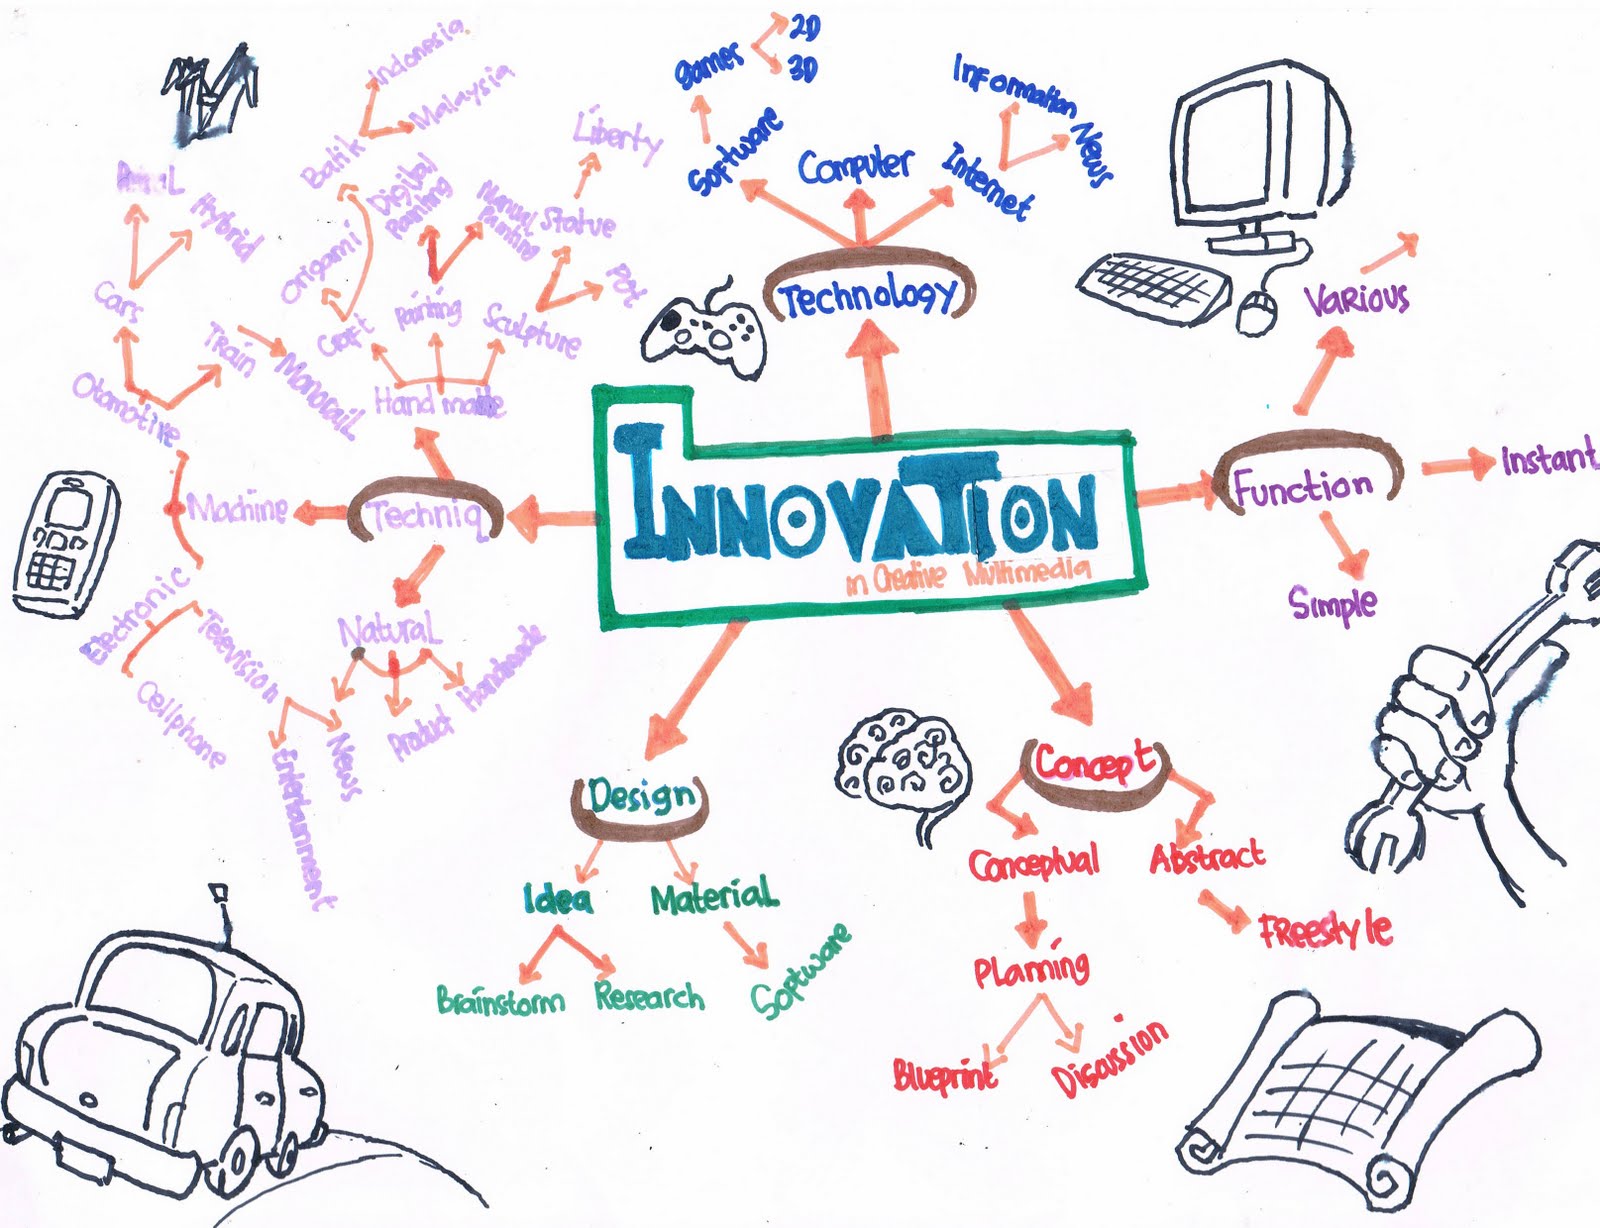 INNOVATION
in Creative Multimedia
Technology
Software
Games
2D
3D
Computer
Internet
Information
News
Function
Various
Instant
Simple
Concept
Conceptual
Planning
Blueprint
Discussion
Abstract
Freestyle
Design
Idea
Brainstorm
Research
Material
Software
Techniq
Hand made
Craft
Origami
Batik
Indonesia
Malaysia
Painting
Digital
Painting
Manual
Painting
Sculpture
Statue
Liberty
Pot
Machine
Otomotive
Cars
Hybrid
Train
Monorail
Electronic
Television
Entertainment
News
Cellphone
Natural
Product
Handmade